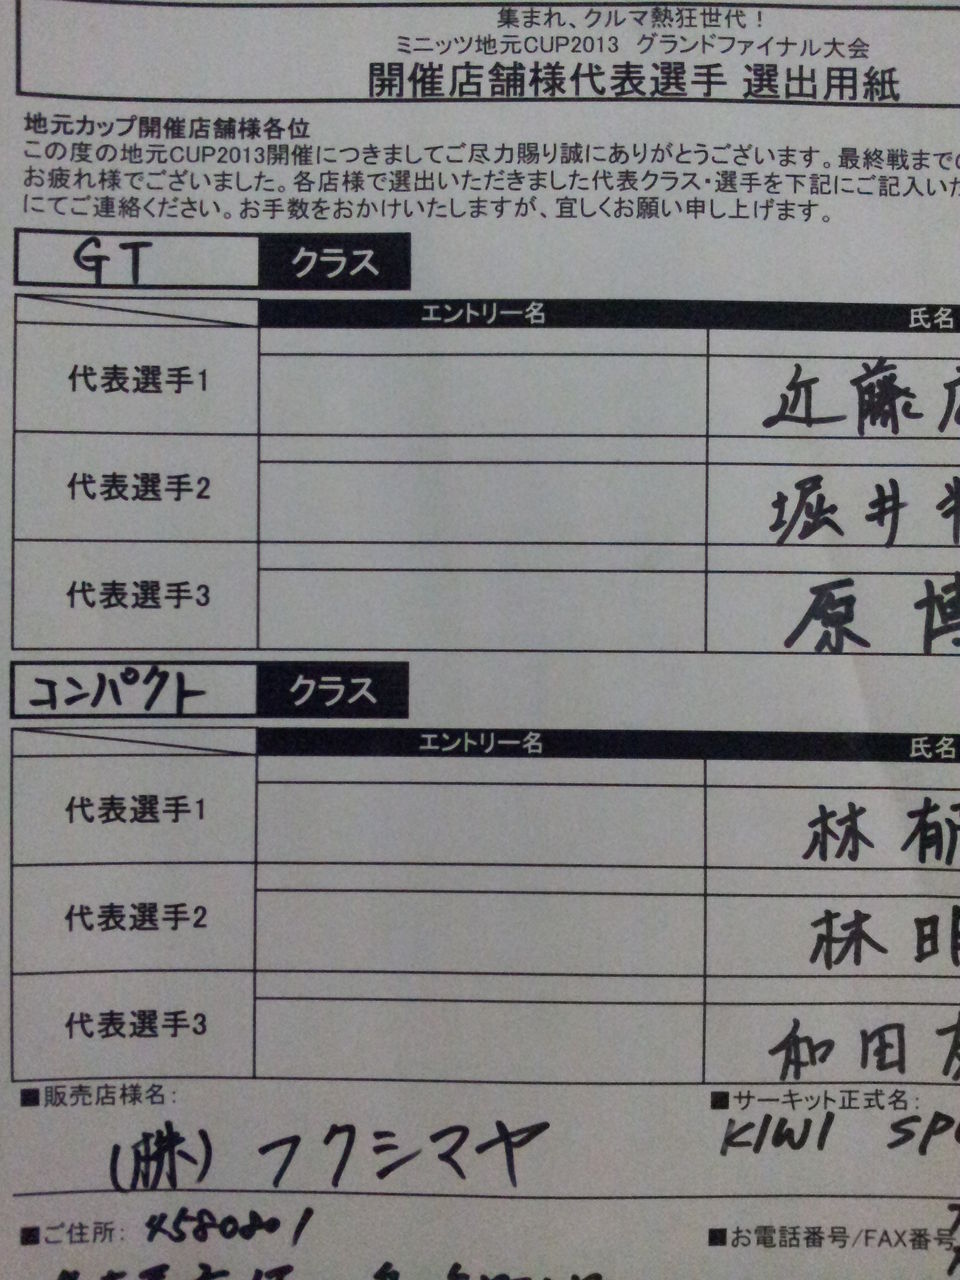 集まれ、クルマ熱狂世代！
ミニッツ地元CUP2013 グランドファイナル大会
開催店舗様代表選手 選出用紙
地元カップ開催店舗様各位
この度の地元CUP2013開催につきましてご尽力賜り誠にありがとうございます。最終戦まで
お疲れ様でございました。各店様で選出いただきました代表クラス・選手を下記にご記入いた
にてご連絡ください。お手数をおかけいたしますが、宜しくお願い申し上げます。
GT クラス
エントリー名 氏名
代表選手1 近藤
代表選手2 堀井
代表選手3 原 博
コンパクト クラス
エントリー名 氏名
代表選手1 林 郁
代表選手2 林 明
代表選手3 和田
■販売店様名: ■サーキット正式名:
(株)フクシマヤ KIWI SP
■ご住所: 4580801 ■お電話番号/FAX番号